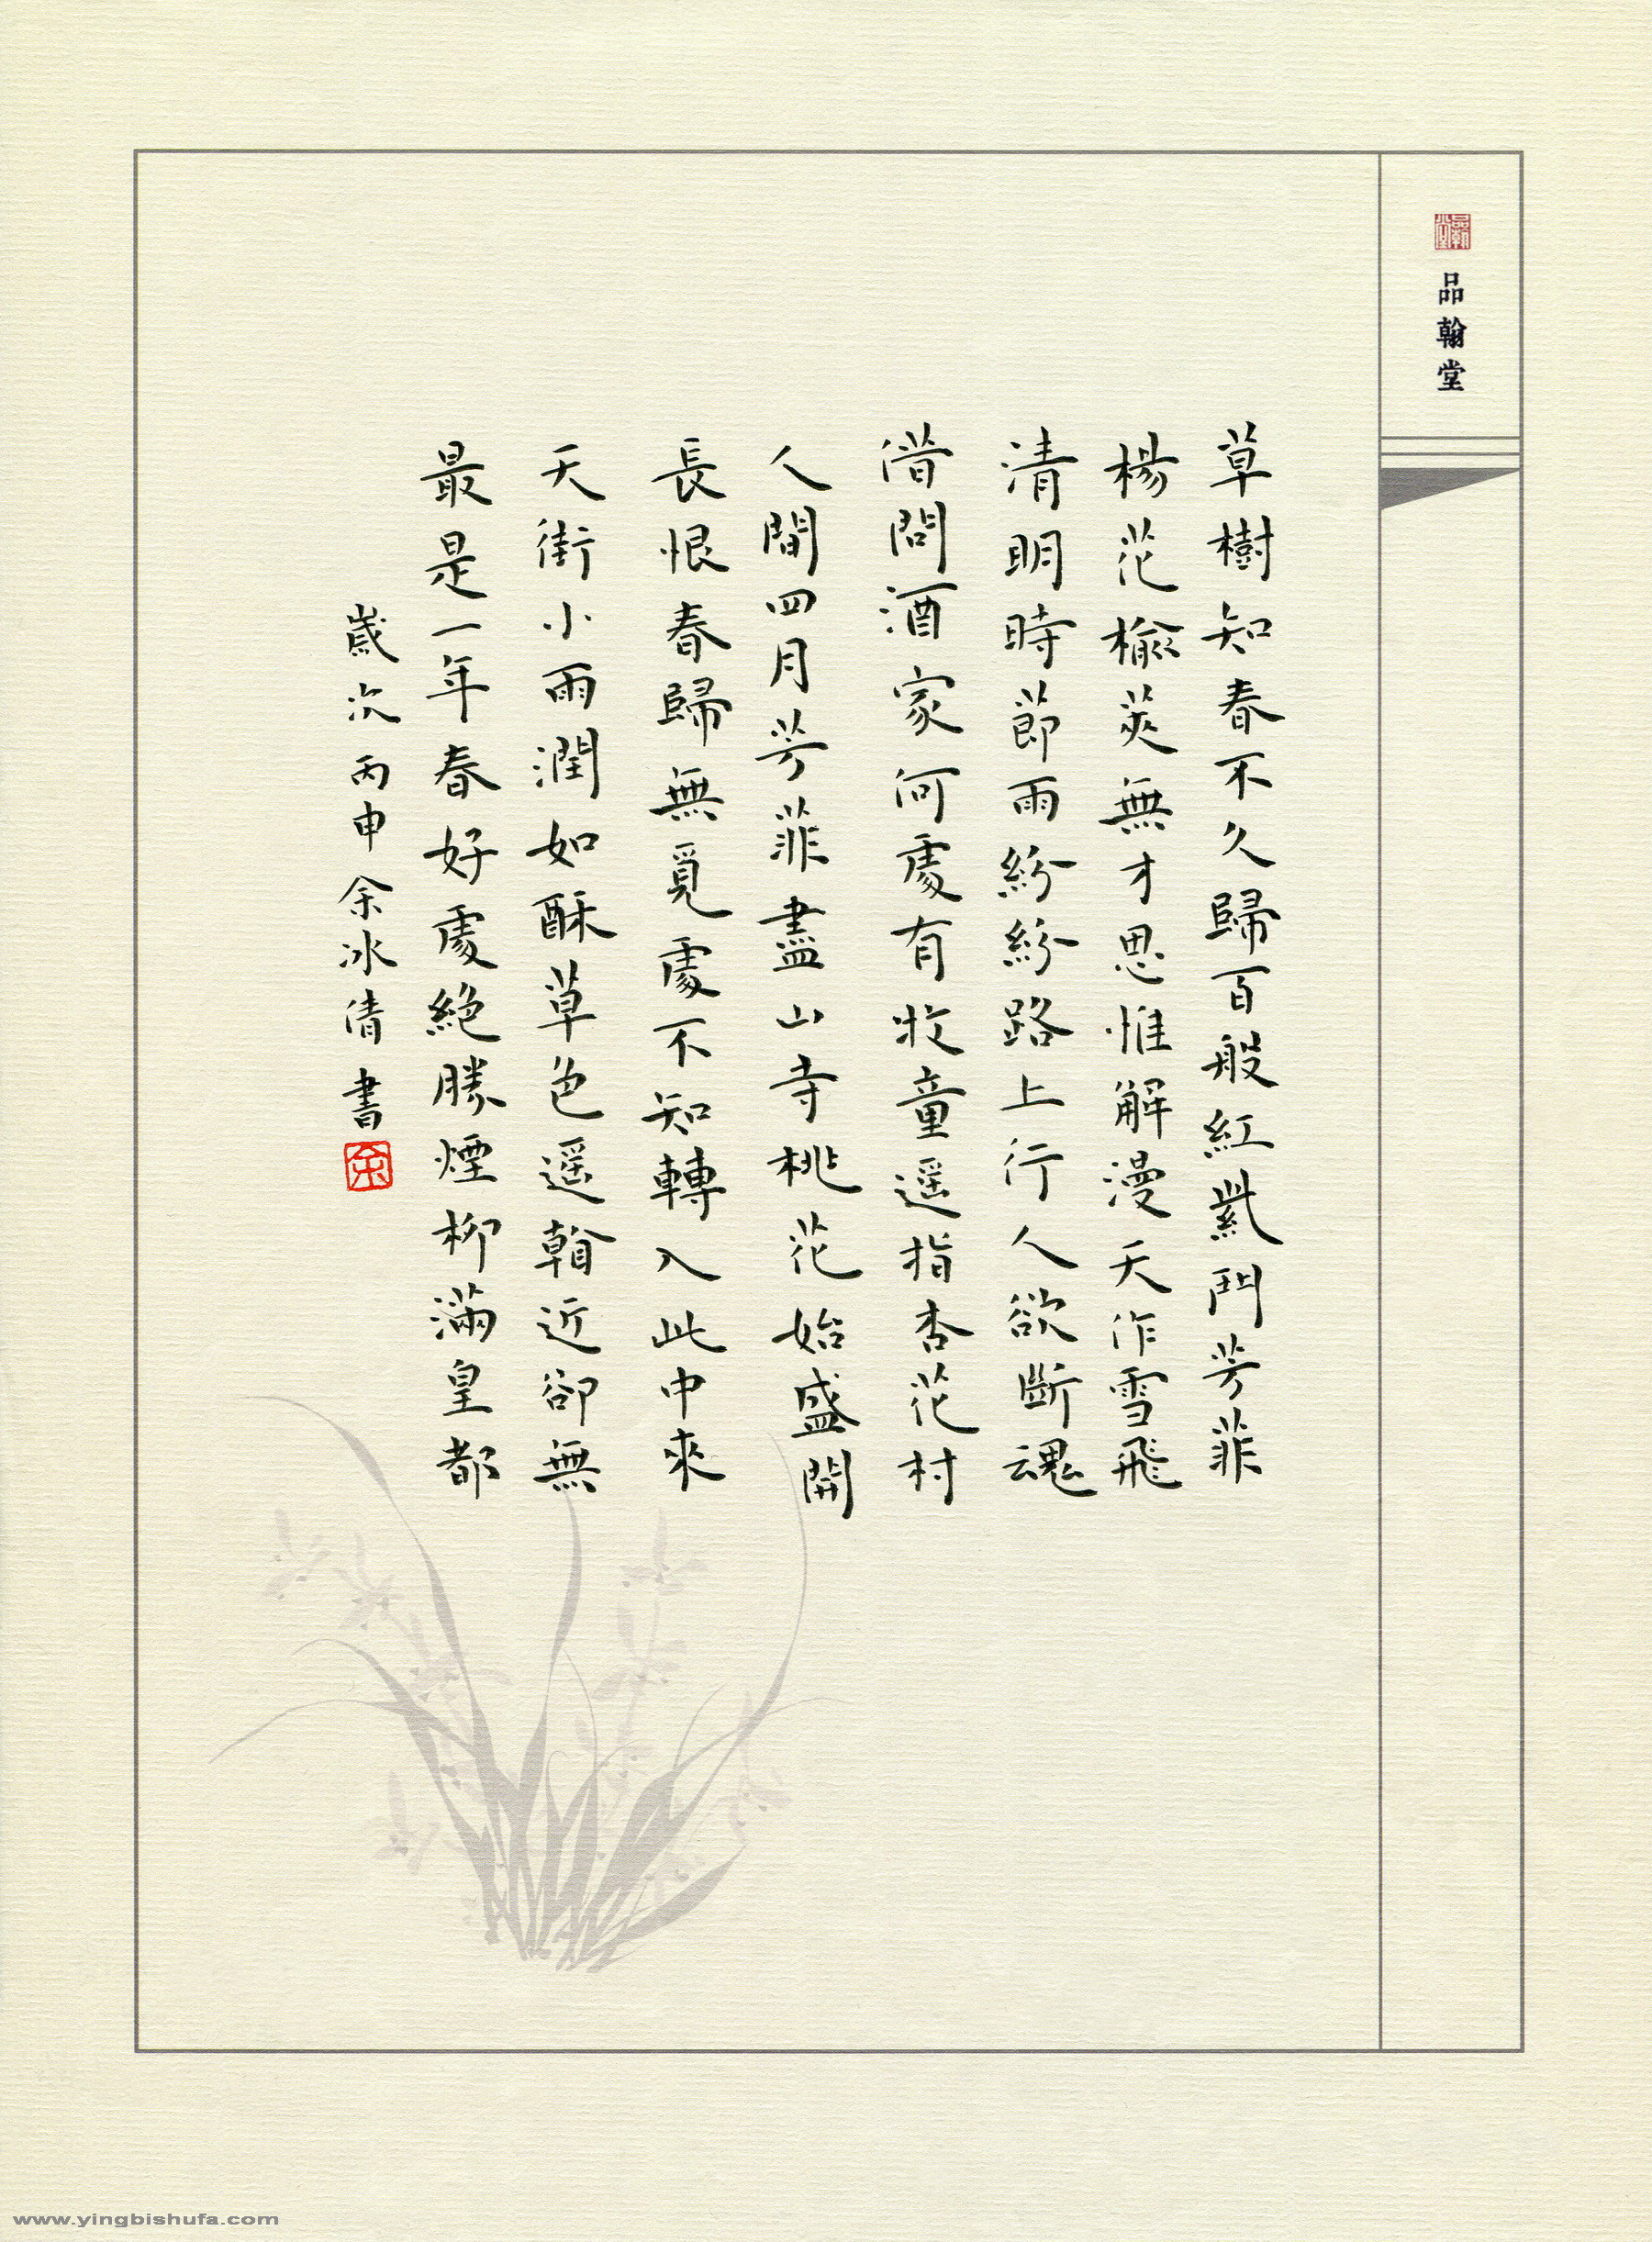 品翰堂
草樹知春不久歸百般紅紫鬥芳菲
楊花榆莢無才思惟解漫天作雪飛
清明時節雨紛紛路上行人欲斷魂
借問酒家何處有牧童遥指杏花村
人間四月芳菲盡山寺桃花始盛開
長恨春歸無覓處不知轉入此中來
天街小雨潤如酥草色遥看近卻無
最是一年春好處絕勝煙柳滿皇都
歲次丙申余冰倩書
余
www.yingbishufa.com